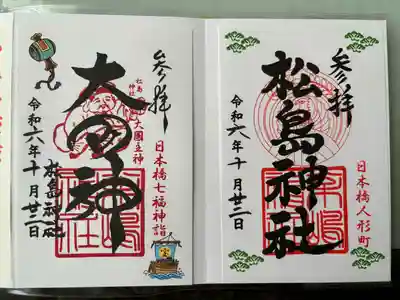 参拝
松島神社
大國主神
日本橋七福神詣
大国神
令和六年十月廿二日
松島神社
参拝
日本橋人形町
松島神社
令和六年十月廿二日